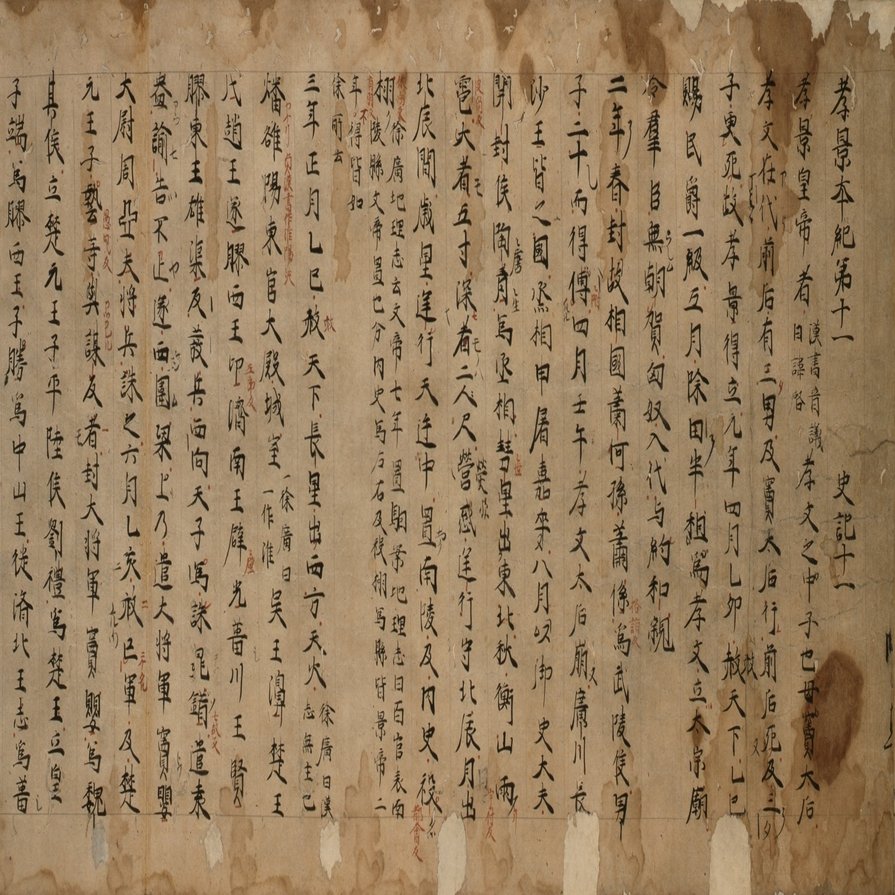 孝景本紀第十一 史記十一
孝景皇帝者漢書音義曰諱啓孝文之中子也母竇太后
孝文在代前后有三男及竇太后行前后死及三
子更死故孝景得立元年四月乙卯赦天下乙巳
賜民爵一級五月除田半租為孝文立太宗廟
令羣臣無朝賀匈奴入代与約和親
二年春封故相國蕭何孫蕭係為武陵侯男
子二十而得傅四月壬午孝文太后崩廣川長
沙王皆之國丞相申屠嘉卒八月以御史大夫
開封侯陶青為丞相彗星出東北秋衡山雨
雹大者五寸深者二尺熒惑逆行守北辰月出
北辰間歲星逆行天廷中置南陵及内史祋
祤徐廣地理志云文帝七年置駰案地理志曰百官表南
陵縣文帝置也分内史為左右及祋祤為縣皆景帝二
年得皆如
徐所云
三年正月乙巳赦天下長星出西方天火徐廣曰漢志無
燔雒陽東宮大殿城室徐廣曰一作淮吳王濞楚王
戊趙王遂膠西王卬濟南王辟光菑川王賢
膠東王雄渠反發兵西向天子為誅晁錯遣袁
盎諭告不止遂西圍梁上乃遣大將軍竇嬰
大尉周亞夫將兵誅之六月乙亥赦亡軍及楚
元王子蓺等與謀反者封大將軍竇嬰為魏
其侯立楚元王子平陸侯劉禮為楚王立皇
子端為膠西王子勝為中山王徙濟北王志為菑